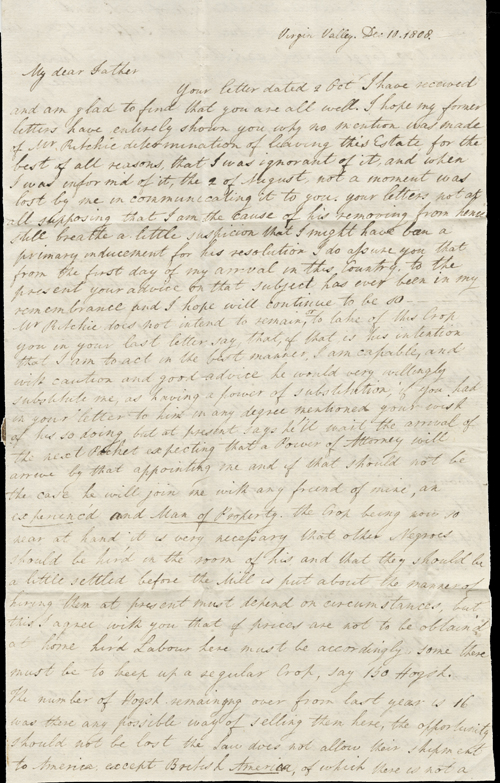 Virgin Valley. Dec 10. 1808.
My dear Father
Your letter dated 2 Octr I have received
and am glad to find that you are all well. I hope my former
letters have entirely shown you, why no mention was made
of Mr. Ritchie determination of leaving this Estate for the
best of all reasons, that I was ignorant of it, and when
I was informed of it, the 2 of August, not a moment was
lost by me in communicating it to you, your letters, not at
all supposing that I am the cause of his removing from hence
still breathe a little suspicion that I might have been a
primary inducement for his resolution I do assure you that
from the first day of my arrival in this, Country, to the
present your advice on that subject has ever been in my
remembrance and I hope will continue to be so.
Mr Ritchie does not intend to remain, to take of this Crop
you in your last letter say, that, if that is his intention
that I am to act in the best manner, I am capable, and
with caution and good advice he would very willingly
substitute me, as having a power of substitution, if you had
in your letter to him in any degree mentioned your wish
of his so doing but at present says he'll wait the arrival of
the next Packet expecting that a Power of Attorney will
arrive by that appointing me and if that should not be
the case he will join me with any friend of mine, an
experienc'd and Man of Property. the Crop being now so
near at hand it is very necessary that other Negroes
should be hir'd in the room of his and that they should be
a little settled before the Mill is put about the manner of
hireing them at present must depend on circumstances, but
this I agree with you that if prices are not to be obtain'd
at home hir'd Labour here must be accordingly. some there
must be to keep up a regular Crop, say 130 Hogsh.
The number of Hogsh remaining over from last year is 16
was there any possible way of selling them here, the opportunity
should not be lost the Law does not allow their shipment
to America except British America, of which there is not a